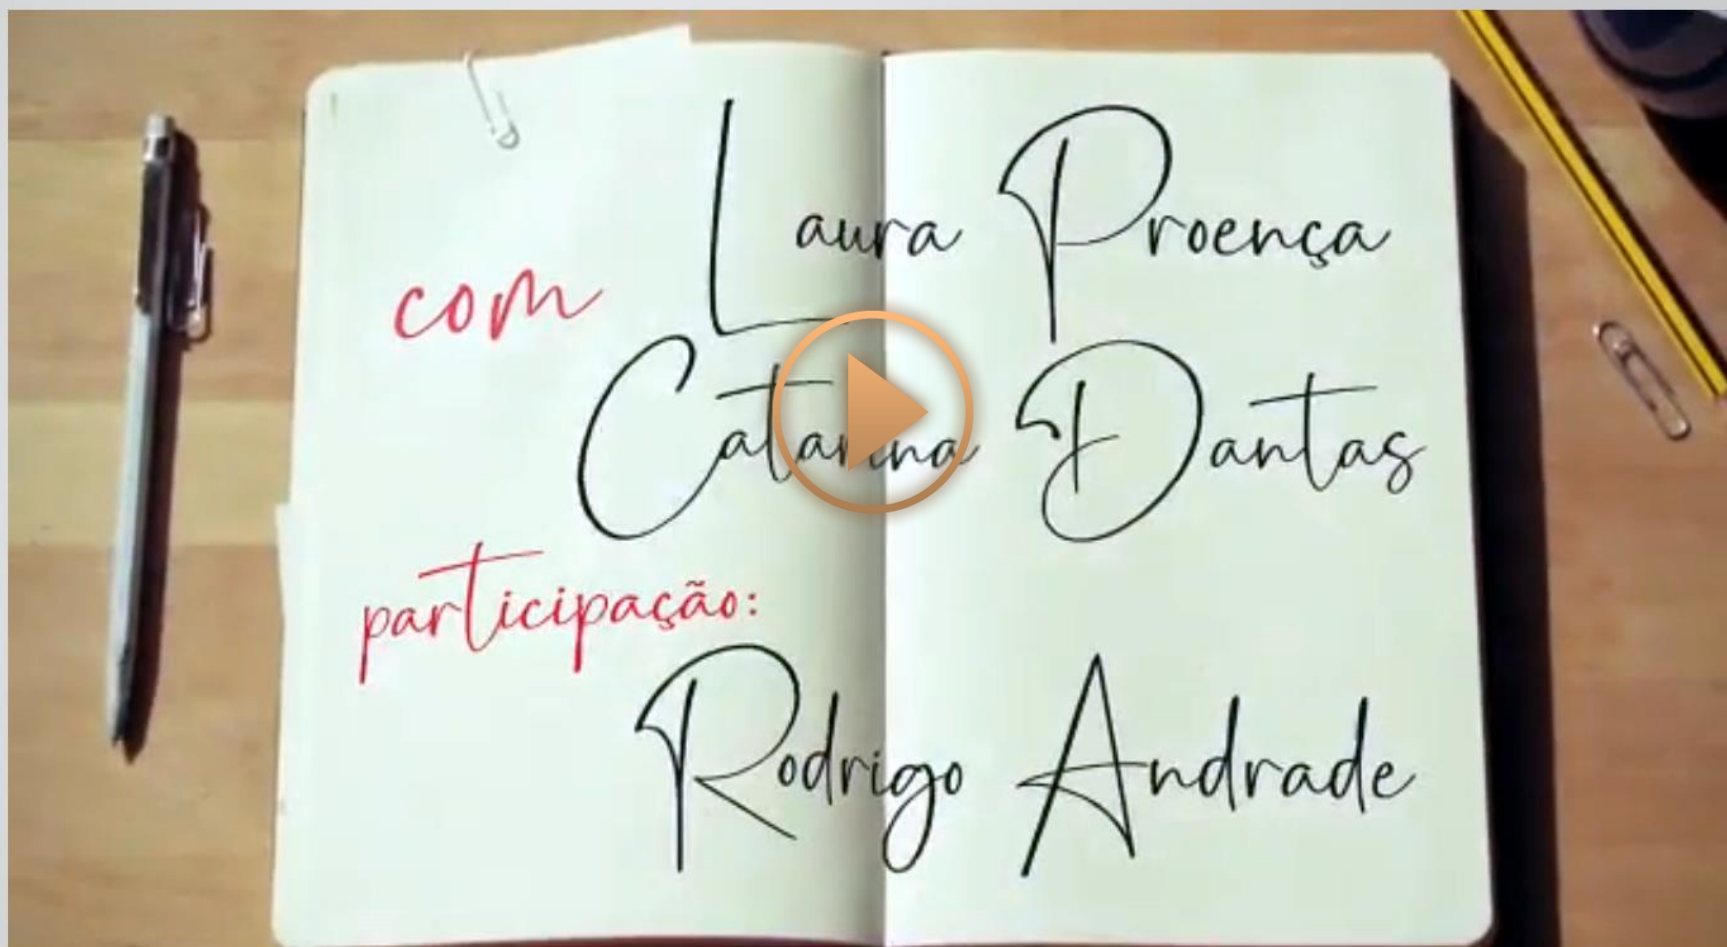 com
Laura Proença
Catarina Dantas
participação:
Rodrigo Andrade